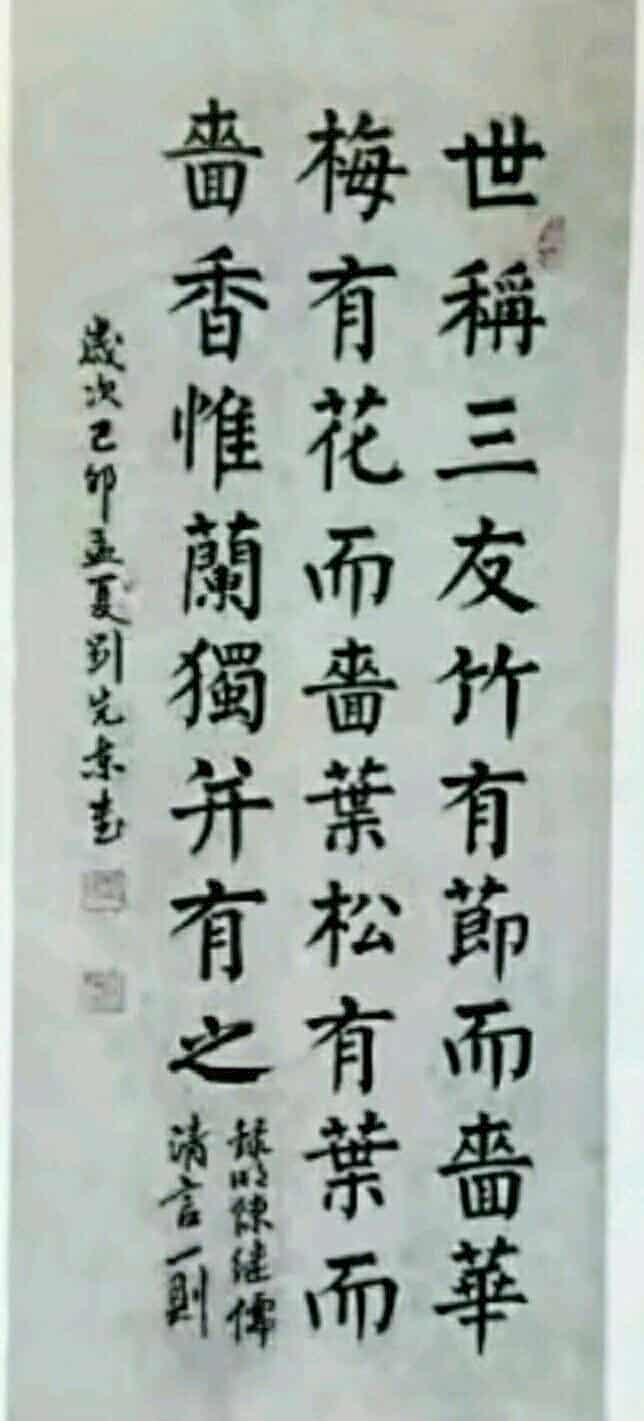 世稱三友竹有節而嗇華
梅有花而嗇葉松有葉而
嗇香惟蘭獨并有之
錄明陳继儒
清言一則
歲次己卯孟夏刘先京书